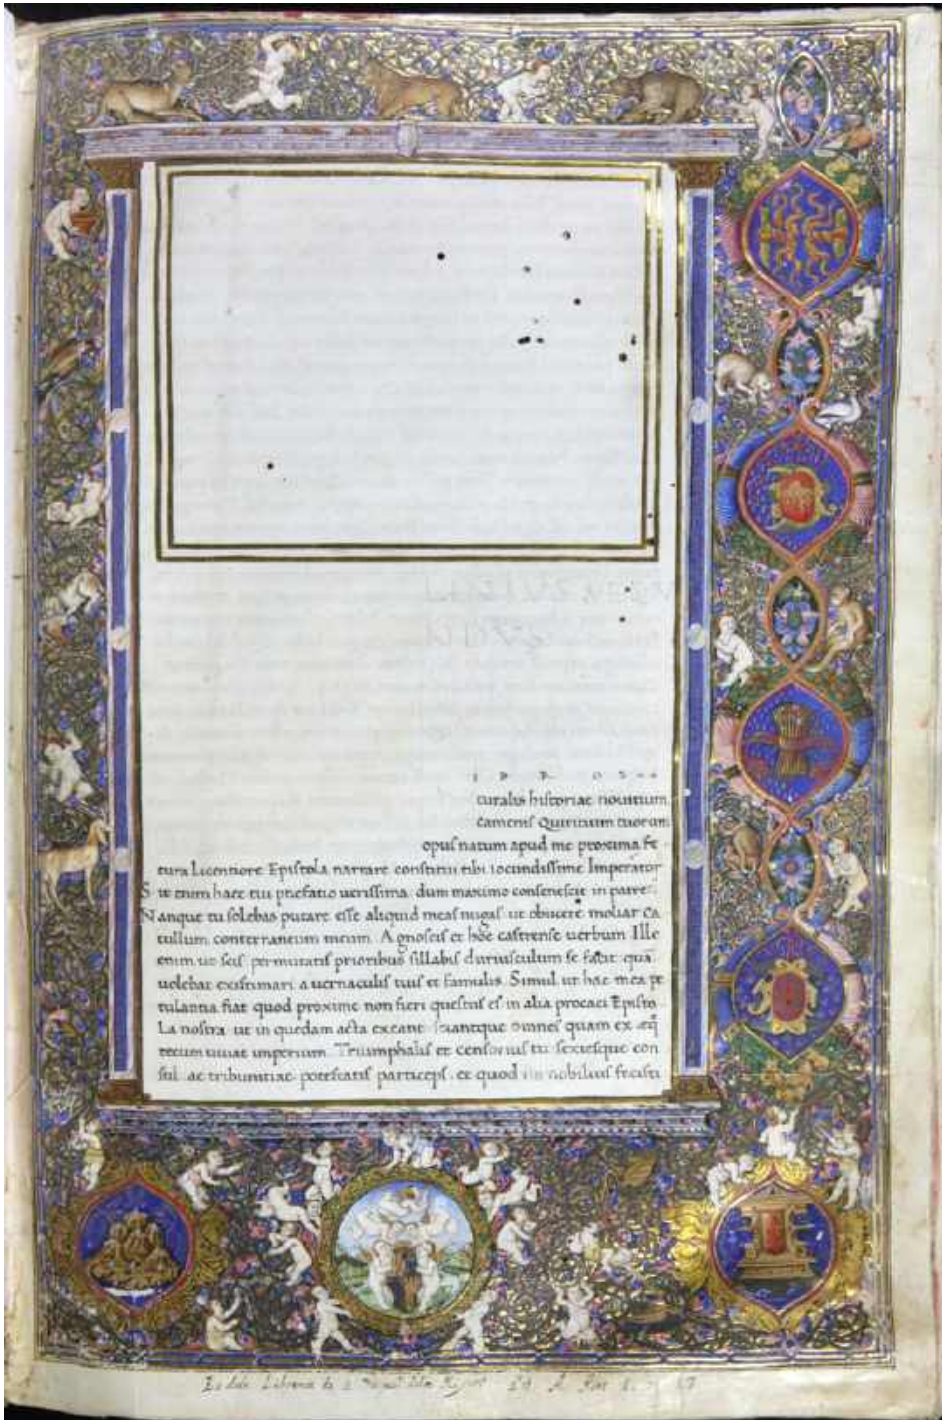 turalis historiae nouitium
camenis Quiritium tuorum
opus natum apud me proxima fe
tura Licentiore Epistola narrare constitui tibi iocundissime Imperator
S it enim haec tui praefatio uerissima dum maximo consenescit in patre
N anque tu solebas putare esse aliquid meas nugas ut obiicere moliar Ca
tullum conterraneum meum Agnoscis et hoc castrense uerbum Ille
enim ut scis permutatis prioribus sillabis duriusculum se fecit quā
uolebat existimari a uernaculis tuis et famulis Simul ut hac mea pe
tulantia fiat quod proxime non fieri questus es in alia procaci Episto
La nostra ut in quedam acta exeant sciantque omnes quam ex eq
tecum uiuat imperium Triumphalis et censorius tu sextiesque con
sul ac tribunitiae potestatis particeps et quod nobilius fecisti